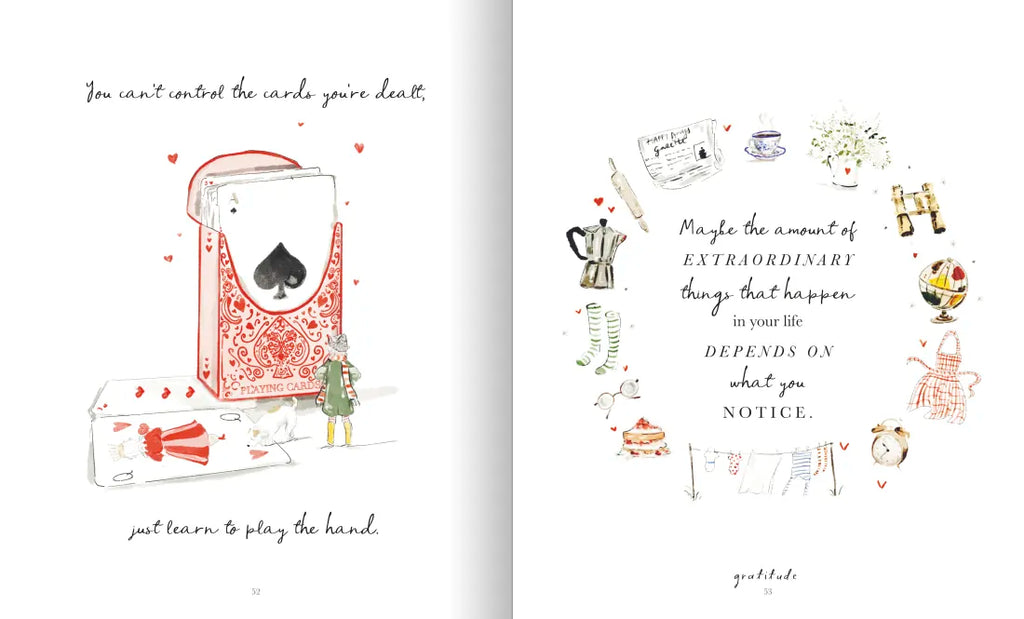 You can't control the cards you're dealt,
A
PLAYING CARDS
Q
Q
just learn to play the hand.
52
Maybe the amount of
EXTRAORDINARY
things that happen
in your life
DEPENDS ON
what you
NOTICE.
gratitude
53